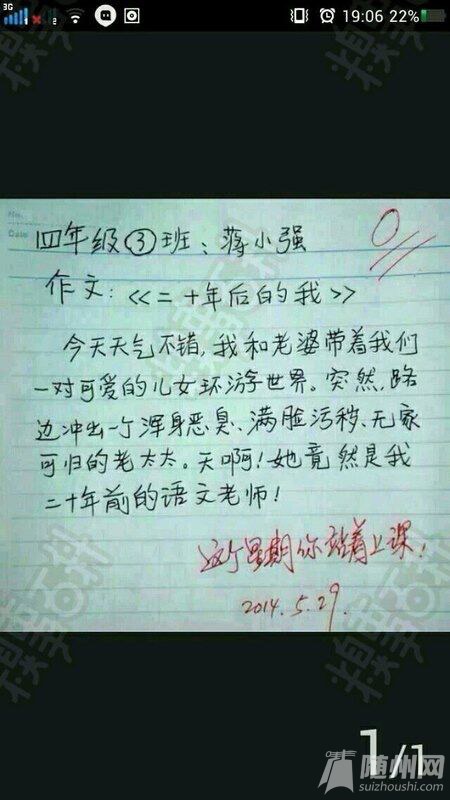 3G
1 2 3 19:06 22%
No.
Date
四年级③班、蒋小强
0
作文:《二十年后的我》
今天天气不错,我和老婆带着我们
一对可爱的儿女环游世界。突然,路
边冲出一个浑身恶臭、满脸污秽、无家
可归的老太太。天啊!她竟然是我
二十年前的语文老师!
这个星期你站着上课!
2014.5.29.
1/1
随州网
suizhoushi.com